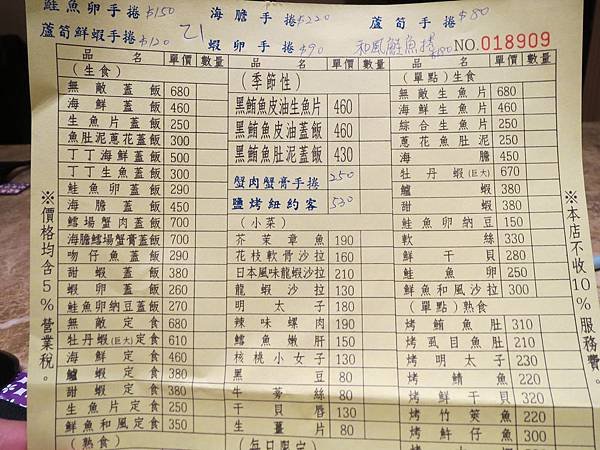 鮭魚卵手捲$150 海膽手捲$220 蘆筍手捲$80
蘆筍鮮蝦手捲$120 21 蝦卵手捲$90 和風鮭魚捲$180 NO.018909
品名 單價 數量
(生食)
無敵蓋飯 680
海鮮蓋飯 460
生魚片蓋飯 250
魚肚泥蔥花蓋飯 300
丁丁海鮮蓋飯 500
丁丁生魚蓋飯 300
鮭魚卵蓋飯 290
海膽蓋飯 450
鱈場蟹肉蓋飯 700
海膽鱈場蟹膏蓋飯 700
吻仔魚蓋飯 290
甜蝦蓋飯 380
蝦卵蓋飯 260
鮭魚卵納豆蓋飯 270
無敵定食 680
牡丹蝦(巨大)定食 610
海鮮定食 460
鱸蝦定食 380
甜蝦定食 380
生魚片定食 250
鮮魚和風定食 350
(熟食)
品名 單價 數量
(季節性)
黑鮪魚皮油生魚片 460
黑鮪魚皮油蓋飯 460
黑鮪魚肚泥蓋飯 430
蟹肉蟹膏手捲 250
鹽烤紐約客 530
(小菜)
芥茉章魚 190
花枝軟骨沙拉 160
日本風味龍蝦沙拉 210
龍蝦沙拉 130
明太子 180
辣味螺肉 190
鱈魚嫩肝 150
核桃小女子 130
黑豆 80
牛蒡絲 80
干貝唇 130
生薑片 80
(每日限定)
品名 單價 數量
(單點)生食
無敵生魚片 680
海鮮生魚片 450
綜合生魚片 250
蔥花魚肚泥 250
海膽 450
牡丹蝦(巨大) 670
鱸蝦 380
甜蝦 380
鮭魚卵納豆 150
軟絲 330
鮮干貝 280
鮭魚卵 250
鮮魚和風沙拉 300
(單點)熟食
烤鮪魚肚 310
烤虱目魚肚 210
烤明太子 230
烤鯖魚 220
烤鮮干貝 320
烤竹筴魚 220
烤魽仔魚 300
※價格均含5%營業稅。
※本店不收10%服務費。